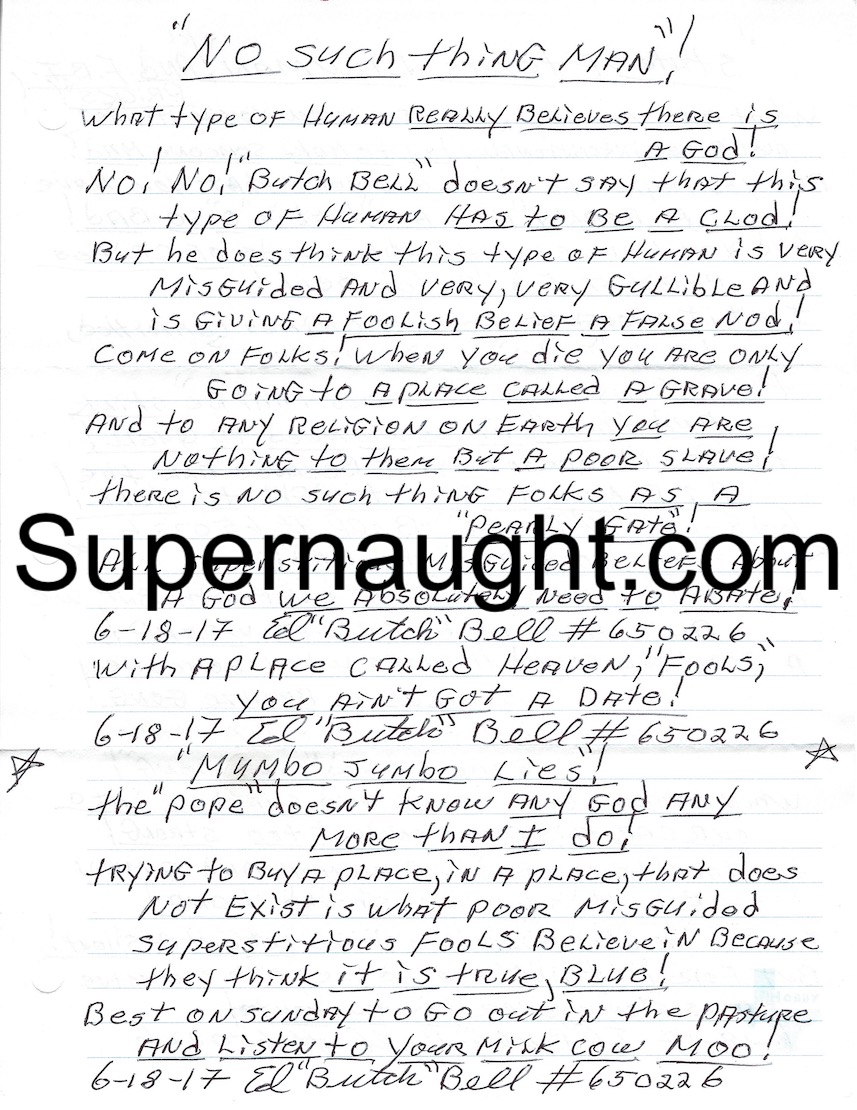 "No such thing Man"!
What type of Human Really Believes there is
A God!
No! No! "Butch Bell" doesn't say that this
type of Human Has to Be A Clod!
But he does think this type of Human is very
Misguided And very, very Gullible And
is Giving A Foolish Belief A False Nod!
Come on Folks! When you die you are only
Going to A place called A Grave!
And to Any Religion on Earth you Are
Nothing to them But A poor slave!
there is no such thing Folks As A
"Pearly Gate"!
Supernaught.com
All superstitious Misguided Beliefs About
A God we Absolutely Need to Abate!
6-18-17 Ed "Butch" Bell #650226
With A place called Heaven, "Fools,"
you Ain't Got A Date!
6-18-17 Ed "Butch" Bell #650226
"Mumbo Jumbo Lies"!
the "pope" doesn't know Any God Any
More than I do!
trying to Buy A place, in A place, that does
Not Exist is what poor Misguided
superstitious Fools Believe in Because
they think it is true, Blue!
Best on sunday to Go out in the pasture
And Listen to your Milk cow Moo!
6-18-17 Ed "Butch" Bell #650226